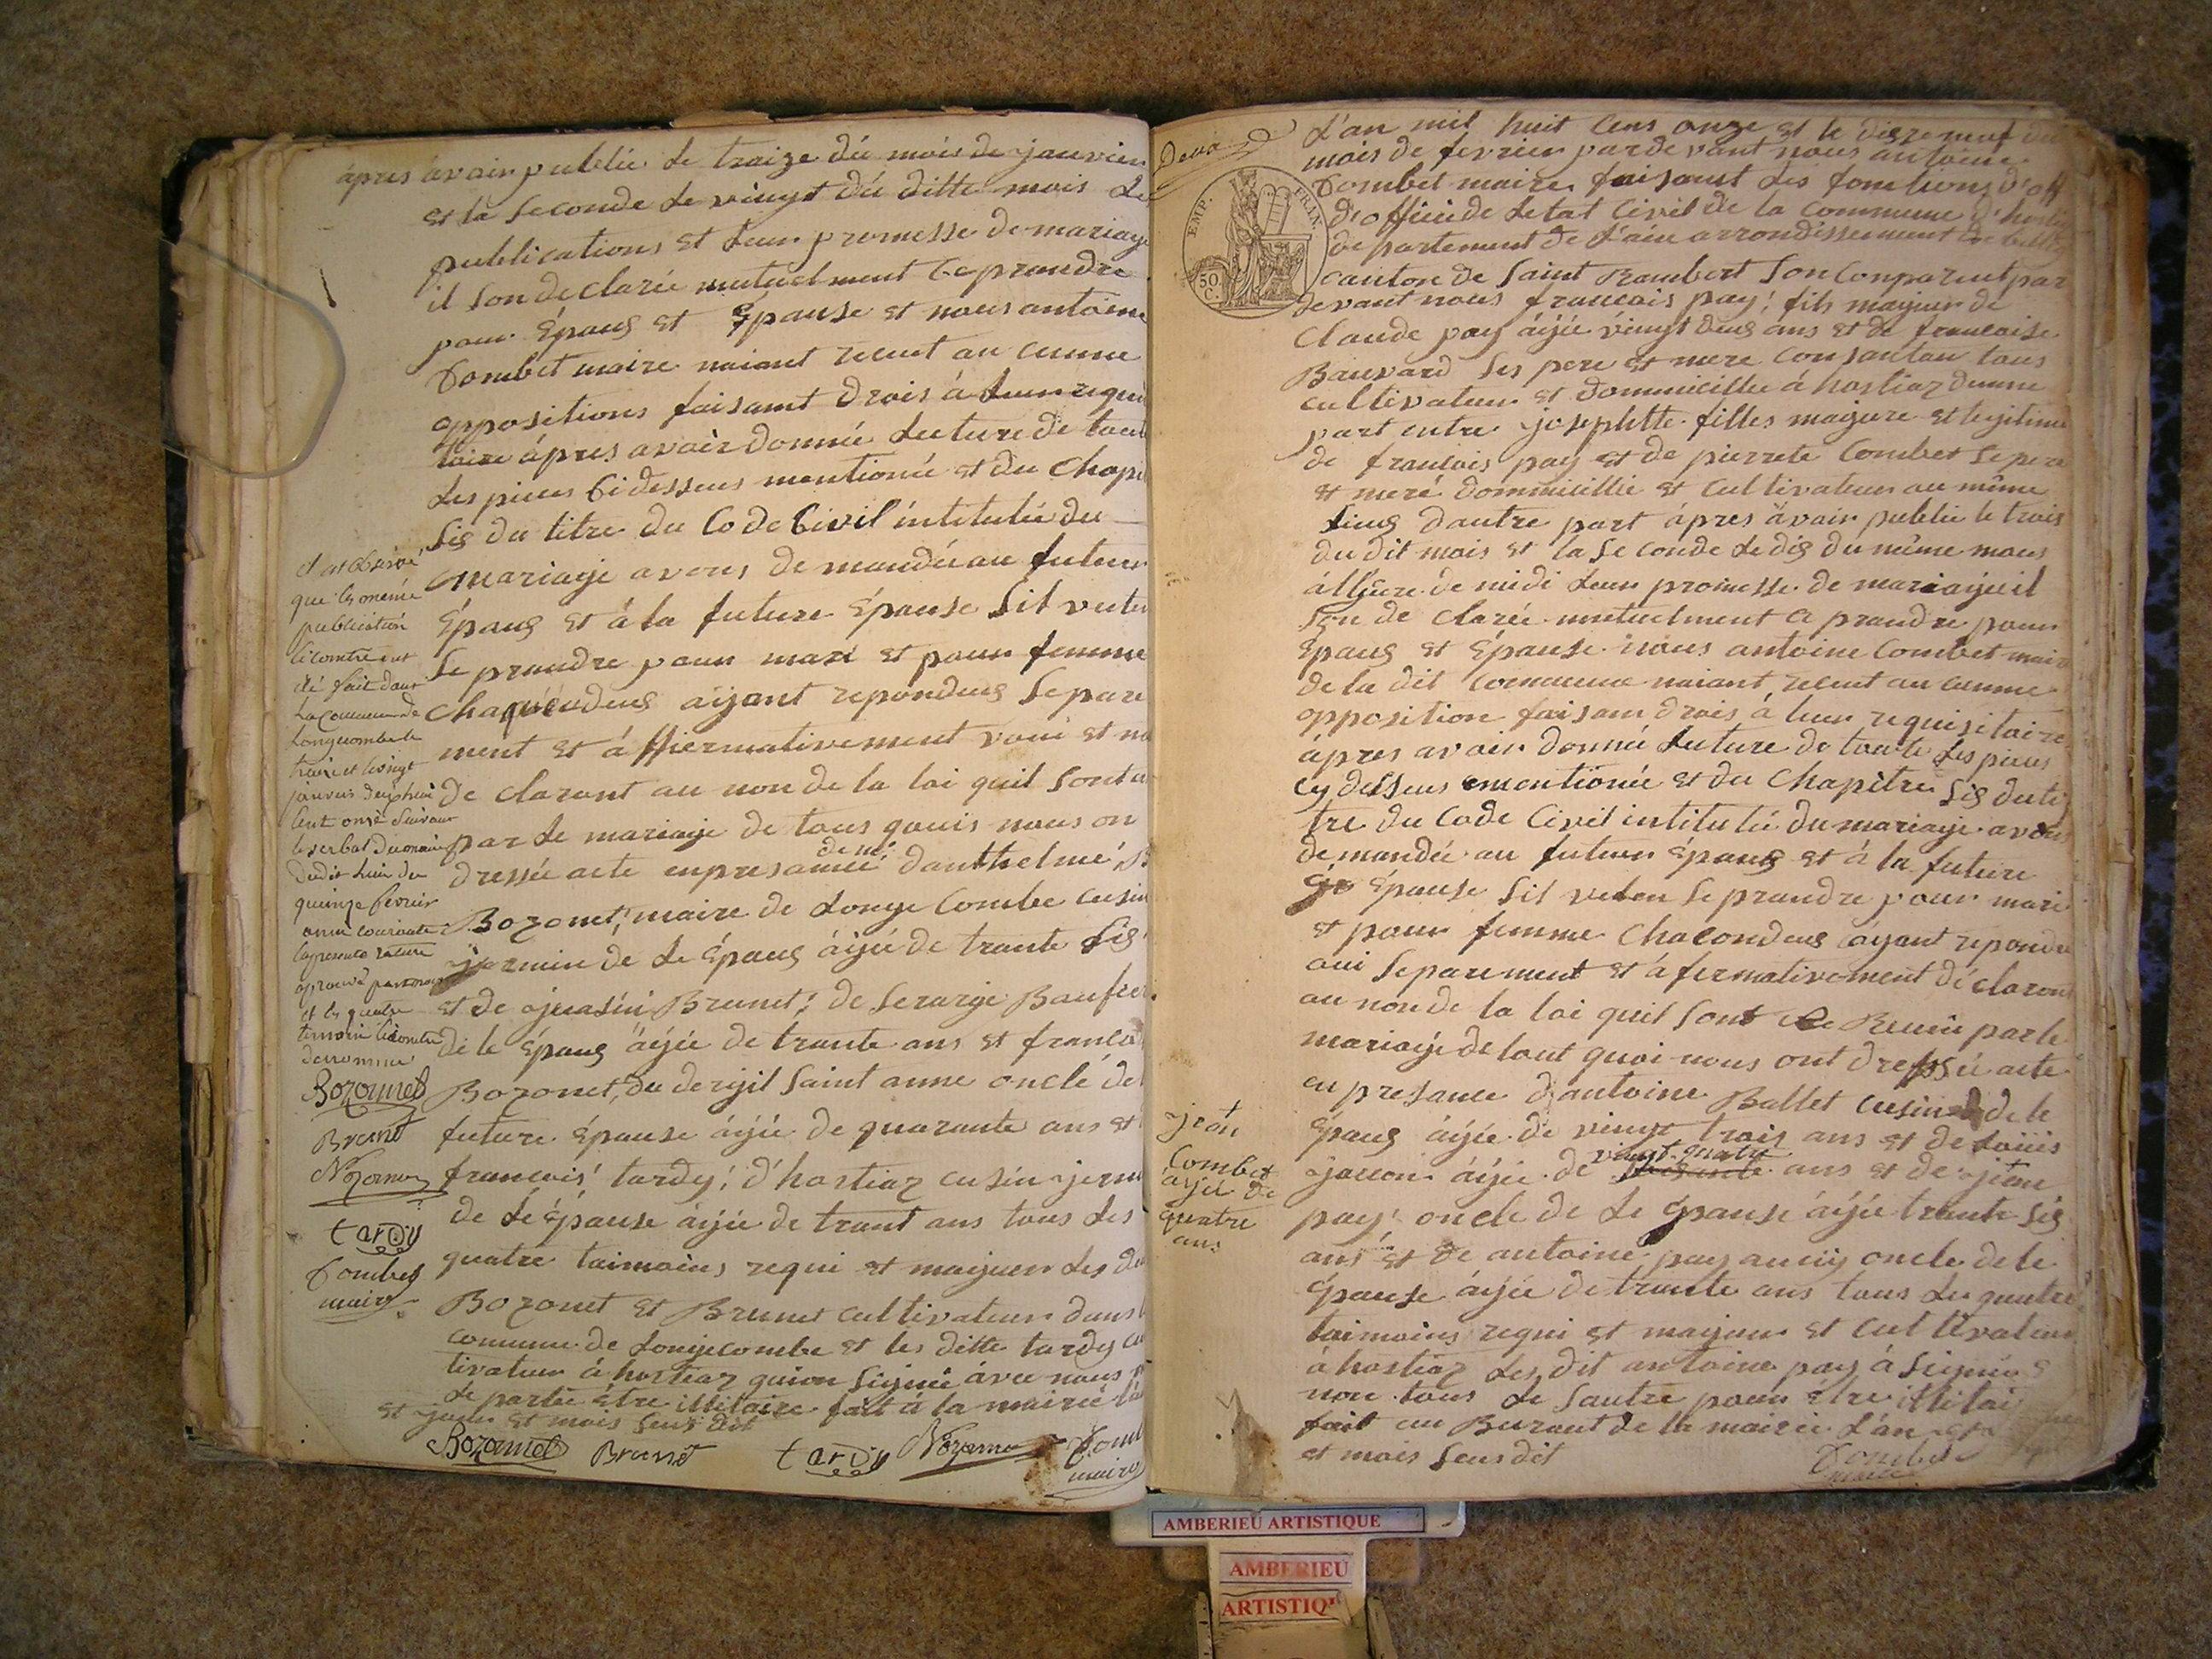 âpres avoir publié le traize dú mois de janvier
et la seconde le vingt dú ditte mois
publications et leur promesse de mariage
il son declarée mutuelment ce prandre
pour épaus et épause et nous antoine
Combet maire naiant recut au cunne
oppositions faisamt drois á leur requi
toire âpres avoir donnée lecture de toute
les pieces cidessus mentionée et du chapi
sis du titre du Code Civil intitulée du
mariage avons demandée au futur
épaus et à la future épause sil vule
se prandre pour mari et pour femme
chaquéudeus aÿant repondus separe
ment et á ffiermativement voui et no
declaront au non de la loi quil sont u
par le mariage de tous qouis nous on
dressée acte enpresance de mr danthelme B
Bozonet, maire de Longe Combe cusin
jermin de le épaus âijée de trante sis
et de Brunet; de serarge Baufrer
de le épaus âijée de trante ans et francoi
Bozonet, du saint anne oncle de l
future épause âijée de quarante ans et
francois tardy; d'hostiaz cusin jerm
de le épause âijée de trant ans tous les
quatre taimoins requi et majeur les du
Bozonet et Brunet cultivateur dans l
commune de Longecombe et les ditte tardy cu
tivateur á hostiaz quion signée ávec nous
le partée étre illitaire fait a la mairie l'a
et jour et mois sus dit
Bozonnet Brunet tardy Nozerma Combet
maire
il at observé
que les meme
publication
ci contre ont
été fait dans
la commune de
Longecombe le
traize et levingt
janvier dixhuit
cent onze suivant
le verbal du maire
dudit lieu du
quinze fevrier
onze courante
la presente rature
aprouvé par nous
et les quatre
temoin ci contre
denommé
Bozonnet
Brunet
Nozerma
tardy
Combet
maire
Deux
EMP. FRAN.
50
C.
L'an mil huit cens onze et le dizze neuf du
mois de fevrier pardevant nous antoine
Combet maire faisant les fonctions d'off
d'officiéde letat Civil de la commune d'hostia
departement de l'ain arrondissement de belley
canton de Saint Rambert son conparut par
devant nous francois pay; fils majeur de
Claude pay âijée vingt deus ans et de francoise
Bauvard ses pere et mere consantan tous
cultivateur et dommicillié á hostiaz dunne
part entre josephtte filles majure et legitime
de francois pay et de pierrete Combet se pere
et meré dommicillié et cultivateur au même
lieus dautre part âpres âvoir publié le trois
du dit mois et la seconde le dis du même mous
á lheure de midi leur promesse de mariage il
son declarée mutuelment ce prandre pour
épaus et épause nous antoine Combet maire
de la dit commune naiant recut au cunne
opposition faisan drois á leur requisitaire
âpres avoir donné lecture de toute les pieces
cy dessus mentionée et du chapitre sis du ti
tre du Code Civil intitulée du mariage avon
demandée au futur épaus et á la future
épause sil vulen se prandre pour mari
et pour femme chacondeus aÿant repondu
oui separement et á fermativement déclaron
au non de la loi quil sont Reunie parle
mariage de tout quoi nous ont dressée acte
en presance d'antoine Ballet cusin de le
épaus âijée de vingt trois ans et de Louis
Jacon âijée de vingt quatre ans et de jean
pay; oncle de le épause âijée trante sis
ans et de antoine pay aucÿ oncle de le
épause âijée de trante ans tous les quatre
taimoins requi et majeur et cultivateur
á hostiaz les dit antoine pay á signée
non tous le sautre pour étre illitai
fait au Buraut de la mairie l'an
et mois sus dit
Combet
maire
jean
Combet
âjée de
quatre
ans
AMBERIEU ARTISTIQUE
AMBERIEU
ARTISTIQ